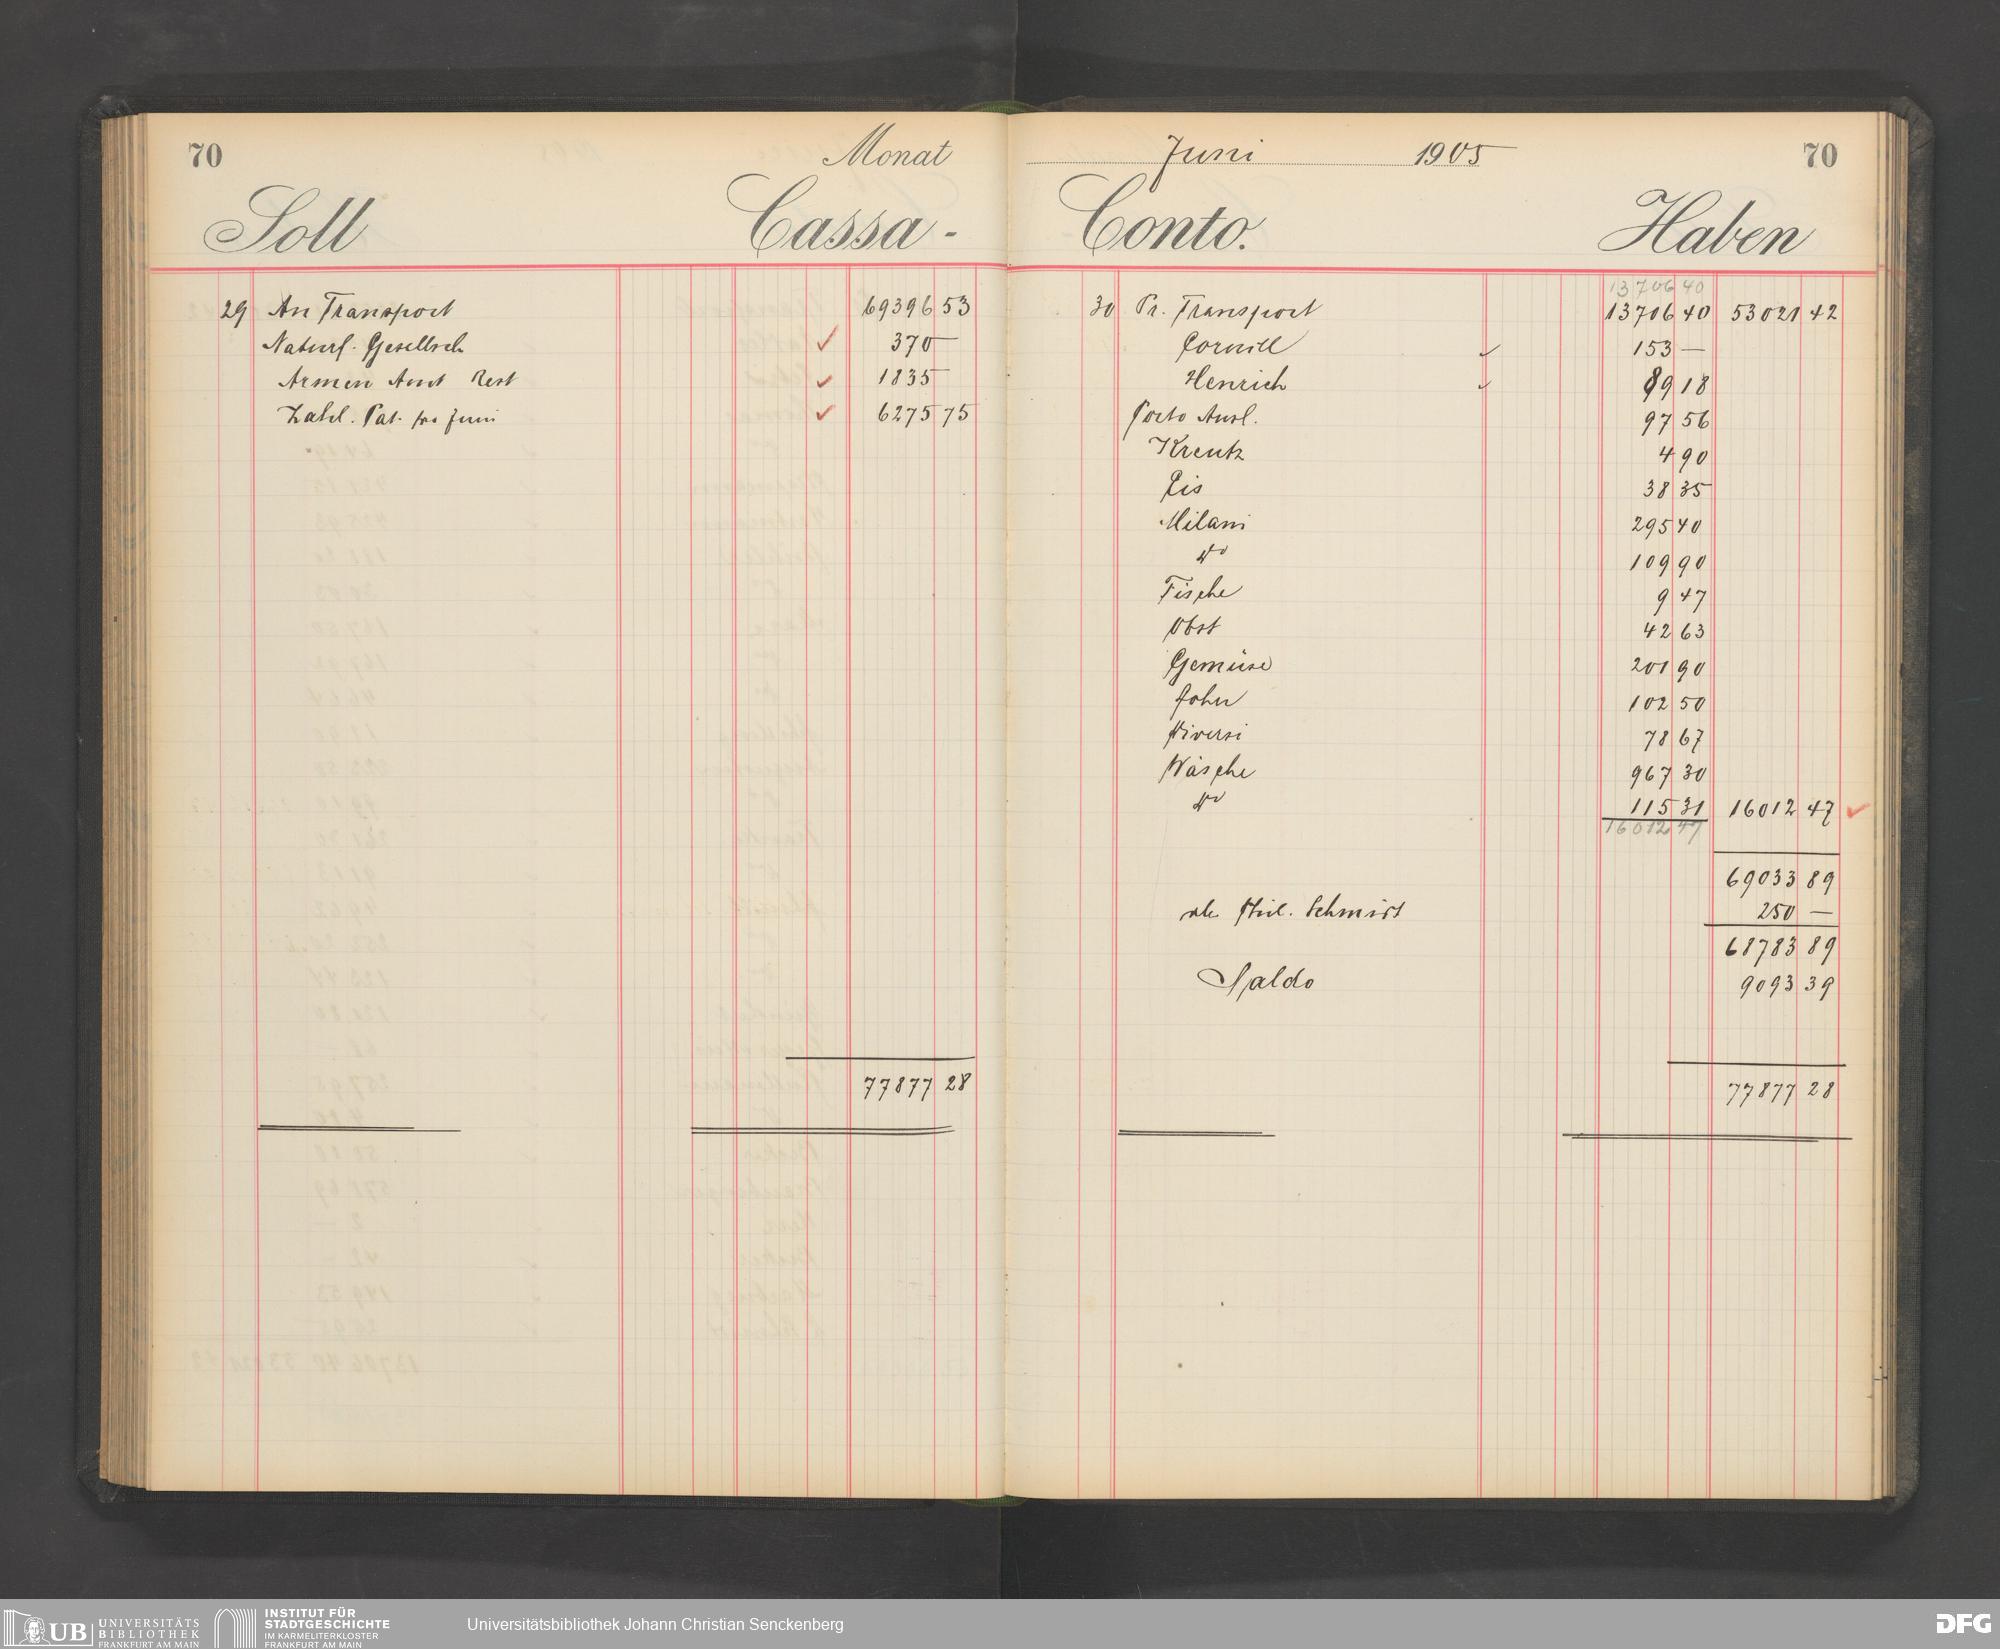 70 Monat
Soll Cassa -
29 An Transport 69396 53
Naturf. Gesellsch 370 —
Armen Amt Rest 1835 —
Zahl. Pat. pro Juni 6275 75
77877 28
Juni 1905 70
Conto. Haben
13706 40
30 Pr. Transport 13706 40 53021 42
Cornill 153 —
Henrich 89 18
Porto Ausl. 97 56
Kreutz 4 90
Eis 38 35
Milani 295 40
do 109 90
Fische 9 47
Obst 42 63
Gemüse 201 90
John 102 50
Diversi 78 67
Wäsche 967 30
do 115 31 16012 47
16012 47
69033 89
Phil. Schmidt 250 —
68783 89
Saldo 9093 39
77877 28
UB UNIVERSITÄTS
BIBLIOTHEK
FRANKFURT AM MAIN
INSTITUT FÜR
STADTGESCHICHTE
IM KARMELITERKLOSTER
FRANKFURT AM MAIN
Universitätsbibliothek Johann Christian Senckenberg
DFG